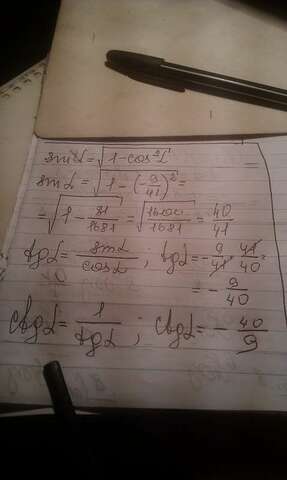 sin α = √(1 - cos² α)
sin α = √(1 - (-9/41)²) =
= √(1 - 81/1681) = √(1600/1681) = 40/41
tg α = sin α / cos α ; tg α = - 9/41 · 41/40 =
= - 9/40
ctg α = 1 / tg α ; ctg α = - 40/9